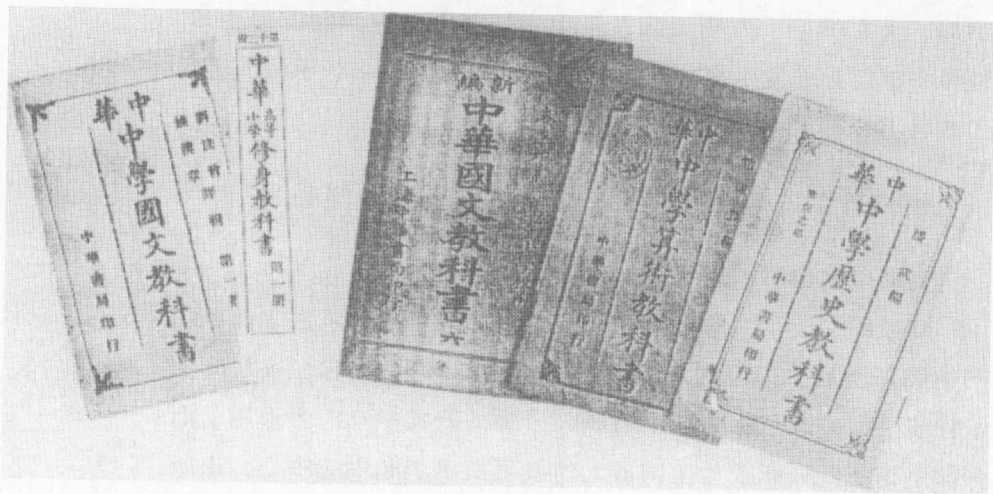 中華
中學國文教科書
劉法曾評輯
第一冊
中華書局印行
中華
高等小學
修身教科書
第一冊
新編
中華國文教科書
六
中華
中學算術教科書
中華書局印行
中華
中學歷史教科書
中華書局印行